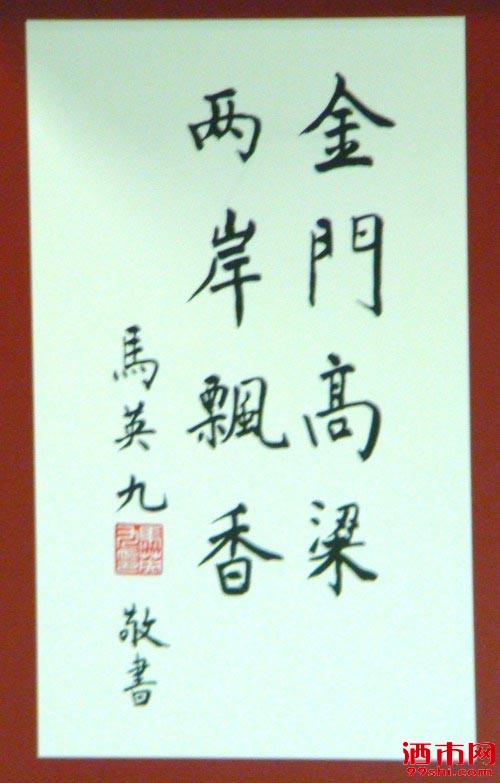 金門高粱
两岸飄香
馬英九
敬書
酒市网
99shi.com